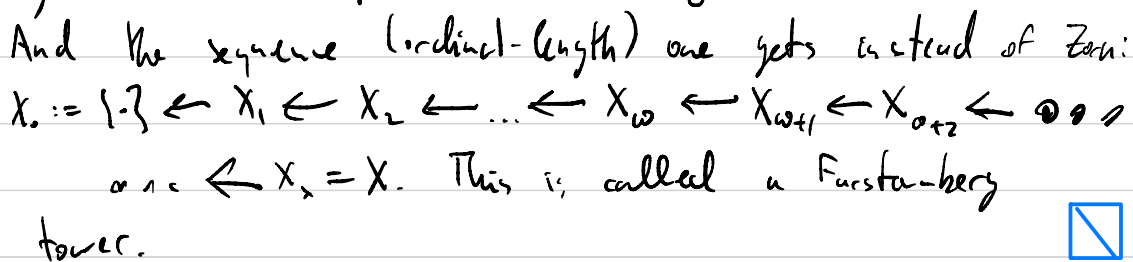 And the sequence (ordinal-length) one gets instead of Zorn:
X₀ := {·} ← X₁ ← X₂ ← ... ← X_ω ← X_{ω+1} ← X_{ω+2} ← ...
... ← X_λ = X. This is called a Furstenberg
tower.